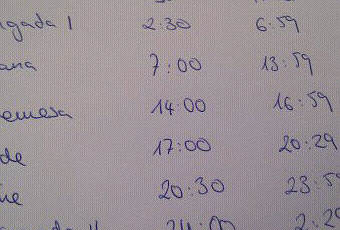 igada 1 2:30 6:59
ana 7:00 13:59
emesa 14:00 16:59
de 17:00 20:29
he 20:30 23:59
24:00 2:29